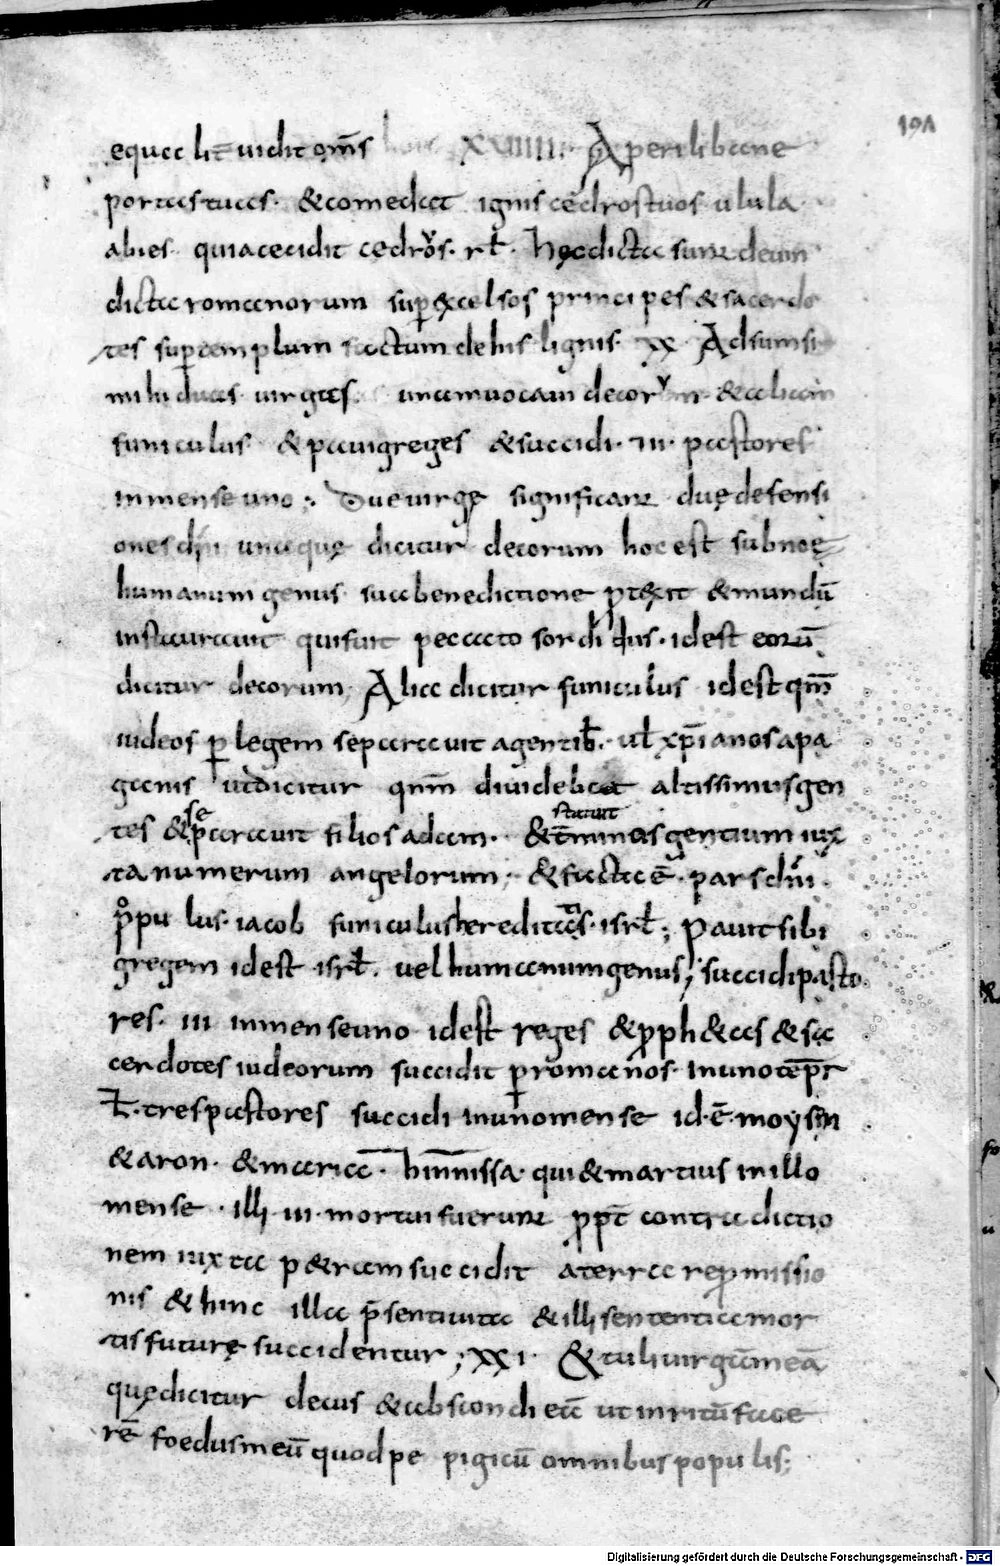 191
equa lit uidit om̄s XVIIII. Aperi libane
portas tuas. & comedat ignis cedros tuos ulula
abies quia cecidit cedros. rł. hęc dicta sunt de uin
dicta romanorum sup excelsos principes & sacerdo
tes sup templum factum de his lignis. XX. Adsumsi
mihi duas uirgas unam uocaui decorum & aliam
funiculus & paui greges & succidi. III. pastores
in mense uno; Due uirgę significant duę defensi
ones dn̄i una quę dicitur decorum hoc est sub noę
humanum genus sua benedictione ptexit & mundū
instaurauit qui fuit peccato sordidus. idest eorū
dicitur decorum, Alia dicitur funiculus idest qm̄
iudeos p legem separauit a gentib. ul xp̄ianos a pa
ganis ut dicitur qnm̄ diuidebat altissimus gen
tes & separauit filios adam. & statuit t̄minos gentium iux
ta numerum angelorum; & facta ē. pars dn̄i.
ppulus. iacob funiculus hereditatis. isrł; Pauit sibi
gregem idest isrł. uel humanum genus; succidi pasto
res. III in mense uno idest reges & pph&as & sa
cerdotes iudeorum succidit p romanos. in uno tēpr
Ł. tres pastores succidi in uno mense id. ē. moysen
& aron. & maria. hinnissa. qui & martius in illo
mense. illi. III. mortui fuerunt ppt contradictio
nem iuxta p&ram succidit a terra repmissio
nis & hinc illa p̄senti uita & illi sententia mor
tis futurę succidentur; XXI. & tuli uirgam meā
quę dicitur decus & abscondi eā ut inritū face
rē foedus meū quod pepigi cū omnibus populis;
Digitalisierung gefördert durch die Deutsche Forschungsgemeinschaft - DFG